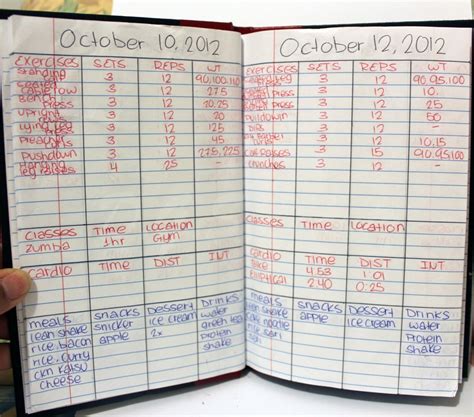 October 10, 2012
Exercises SETS REPS WT
standing 3 12 90,100,110
3 12 27.5
Bench Press 3 12 20.25
upright 3 12 20
Lying Leg 3 12 25
Preacher curls 3 12 45
Pushdown 3 12 27.5, 22.5
Hanging leg raises 4 25 -
Classes Time Location
Zumba 1hr Gym
Cardio Time DIST INT
meals snacks Dessert Drinks
lean shake snicker ice cream water
rice, bacon apple 2x green tea
rice, curry protein
ckn katsu shake
cheese
October 12, 2012
Exercises SETS REPS WT
3 12 90.95.100
Press 3 12 25
pulldown 3 12 50
Dips 3 12 -
3 12 10.15
Calf Raises 3 15 90.95.100
crunches 3 12 -
Classes Time Location
Cardio Time DIST INT
Bike 4.53 1.01
elliptical 2.40 0.25
meals snacks Dessert Drinks
lean shake apple ice cream water
protein
shake